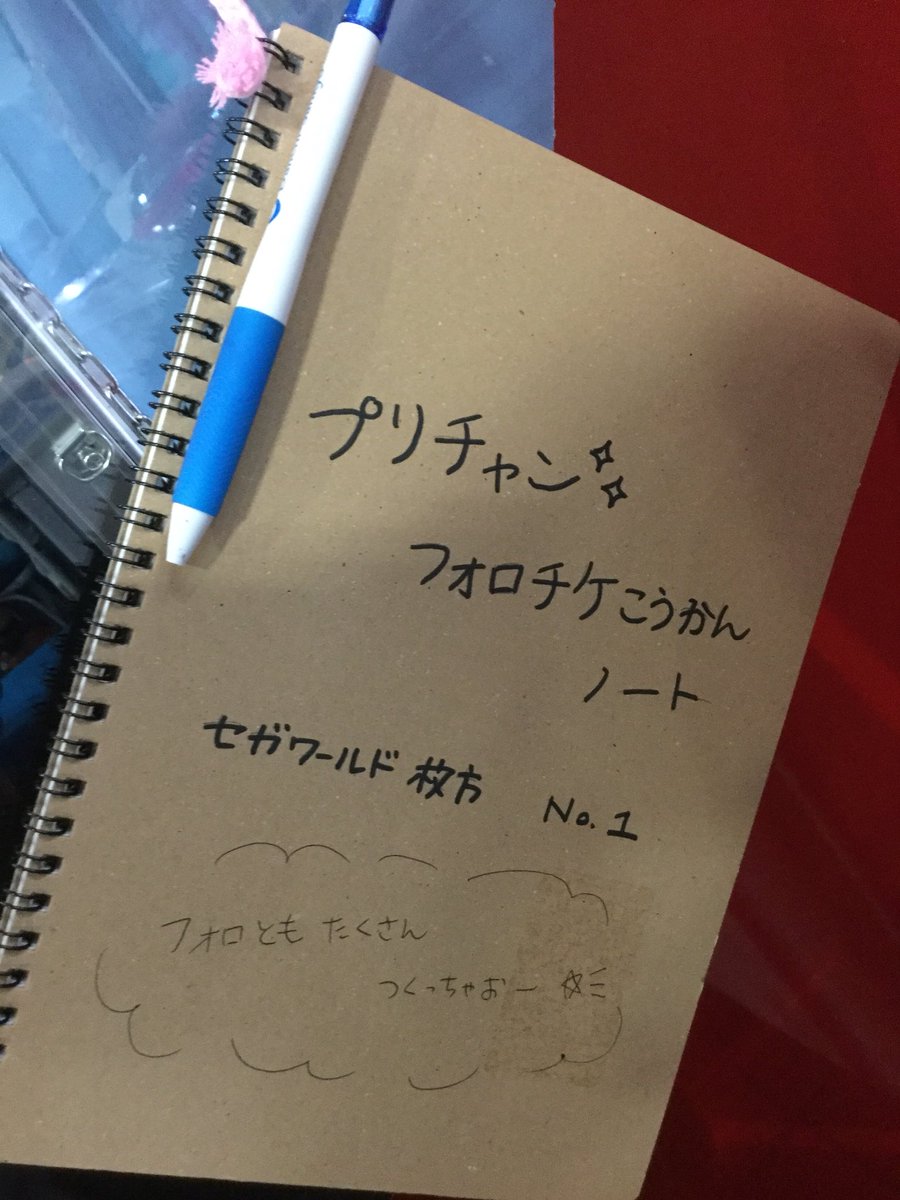 プリチャン
フォロチケこうかん
ノート
セガワールド 枚方 No.1
フォロとも たくさん
つくっちゃおー ☆ミ